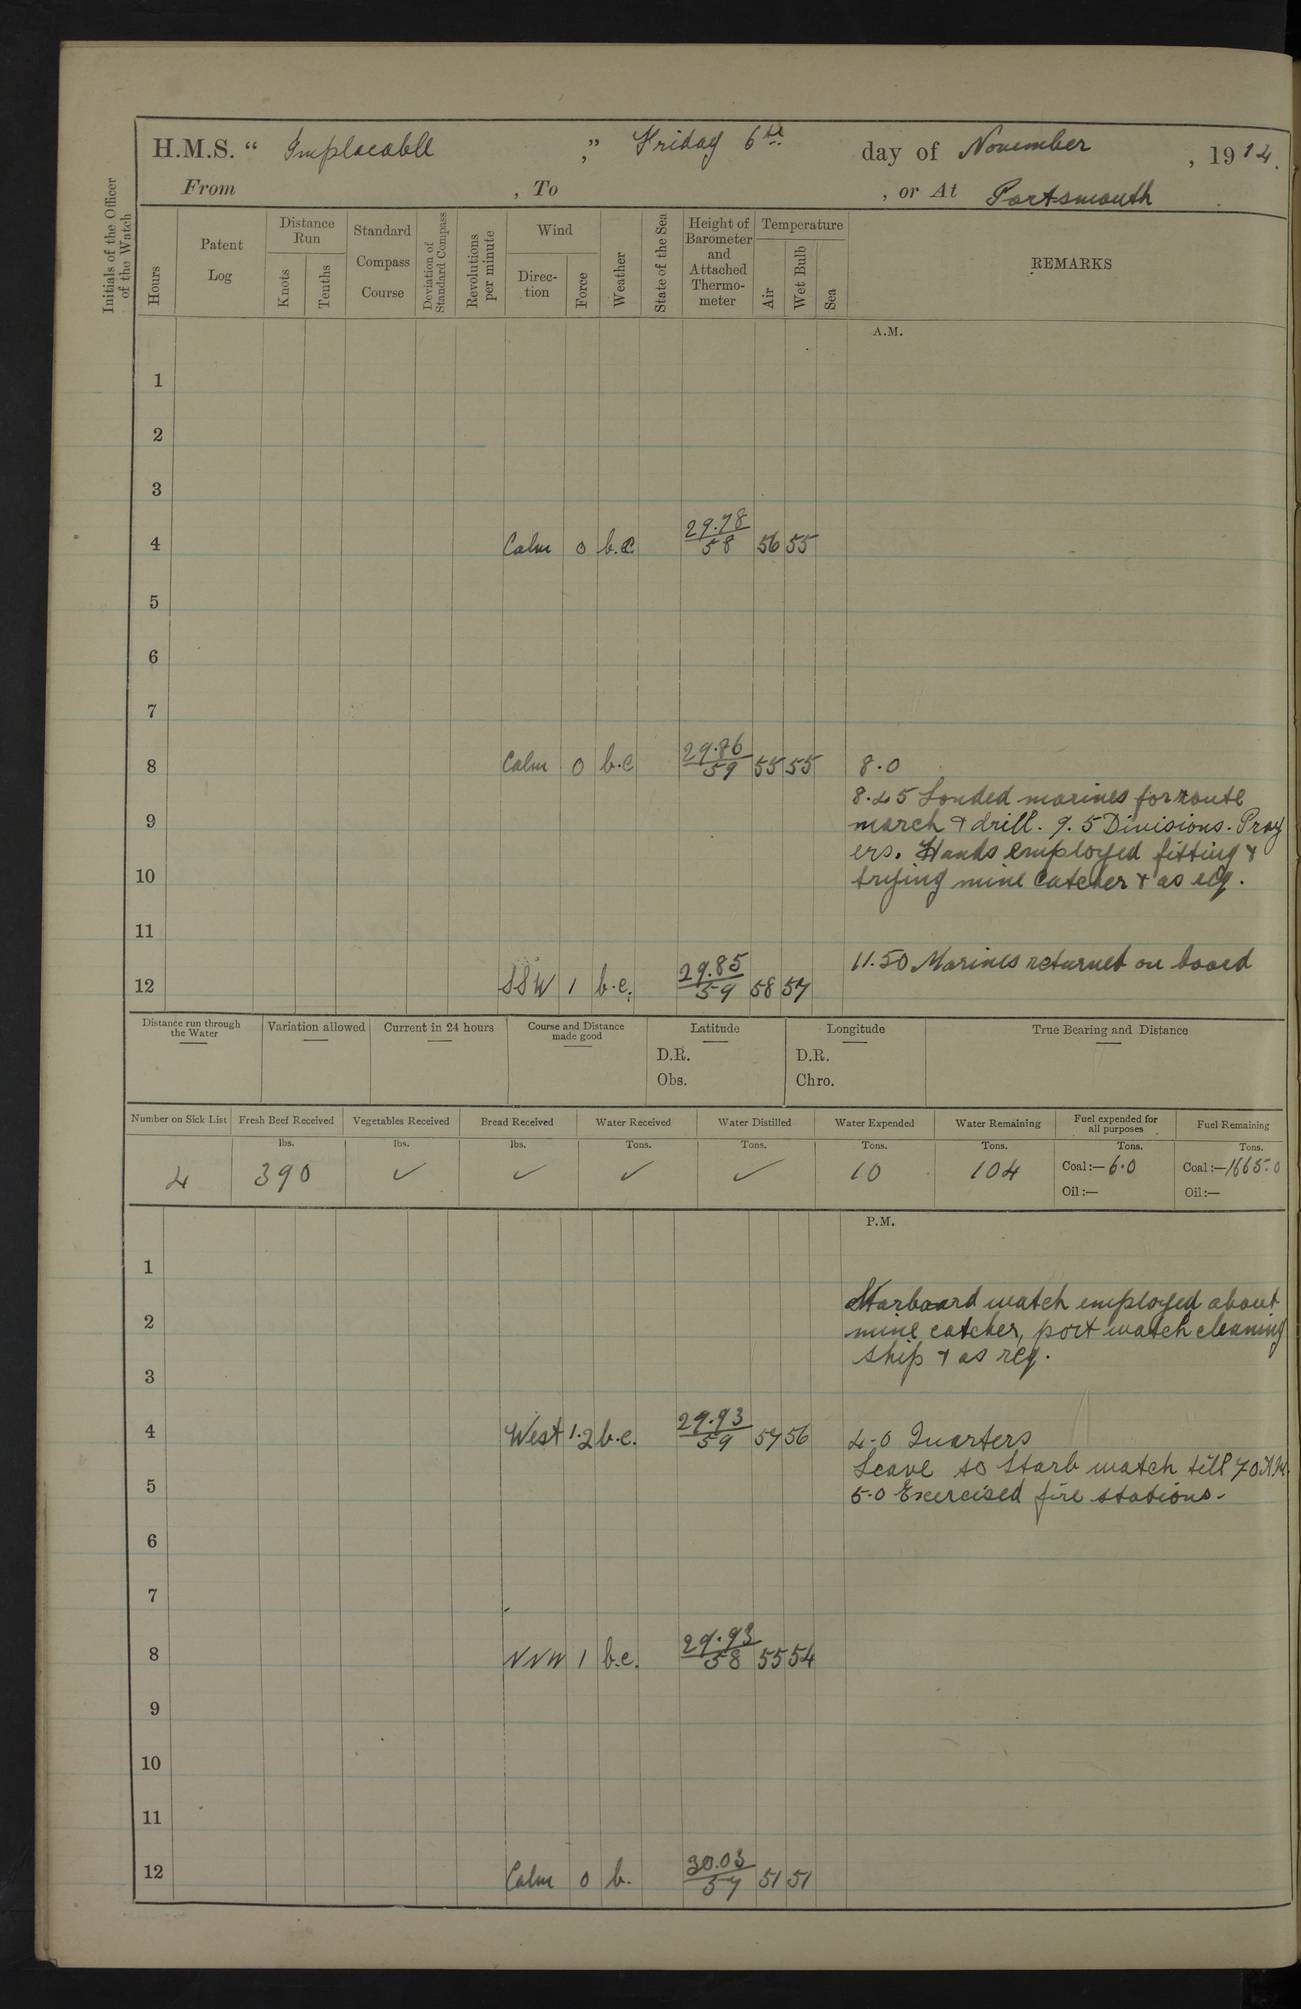 H.M.S. “ Implacable ,” Friday 6th day of November , 1914.
From , To , or At Portsmouth
Initials of the Officer of the Watch
Hours
Patent Log
Distance Run
Knots
Tenths
Standard Compass Course
Deviation of Standard Compass
Revolutions per minute
Wind
Direc-tion
Force
Weather
State of the Sea
Height of Barometer and Attached Thermo-meter
Temperature
Air
Wet Bulb
Sea
REMARKS
A.M.
1
2
3
4 Calm 0 b.c 29.78/58 56 55
5
6
7
8 Calm 0 b.c 29.86/59 55 55 8.0
8.45 Landed marines for route
9 march & drill. 9.5 Divisions. Pray
ers. Hands employed fitting &
10 trying mine catcher & as req.
11
11.50 Marines returned on board
12 SSW 1 b.c. 29.85/59 58 57
Distance run through the Water
Variation allowed
Current in 24 hours
Course and Distance made good
Latitude
D.R.
Obs.
Longitude
D.R.
Chro.
True Bearing and Distance
Number on Sick List Fresh Beef Received Vegetables Received Bread Received Water Received Water Distilled Water Expended Water Remaining Fuel expended for all purposes Fuel Remaining
lbs. lbs. lbs. Tons. Tons. Tons. Tons. Tons. Tons.
4 390 ✓ ✓ ✓ ✓ 10 104 Coal:— 6.0 Coal:—1665.0
Oil:— Oil:—
P.M.
1
Starboard watch employed about
2 mine catcher, port watch cleaning
ship & as req.
3
4 West 1.2 b.c. 29.93/59 57 56 4.0 Quarters
Leave to Starb watch till 7.0 A.M.
5 5.0 Exercised fire stations.
6
7
8 NNW 1 b.c. 29.93/58 55 54
9
10
11
12 Calm 0 b. 30.03/57 51 51